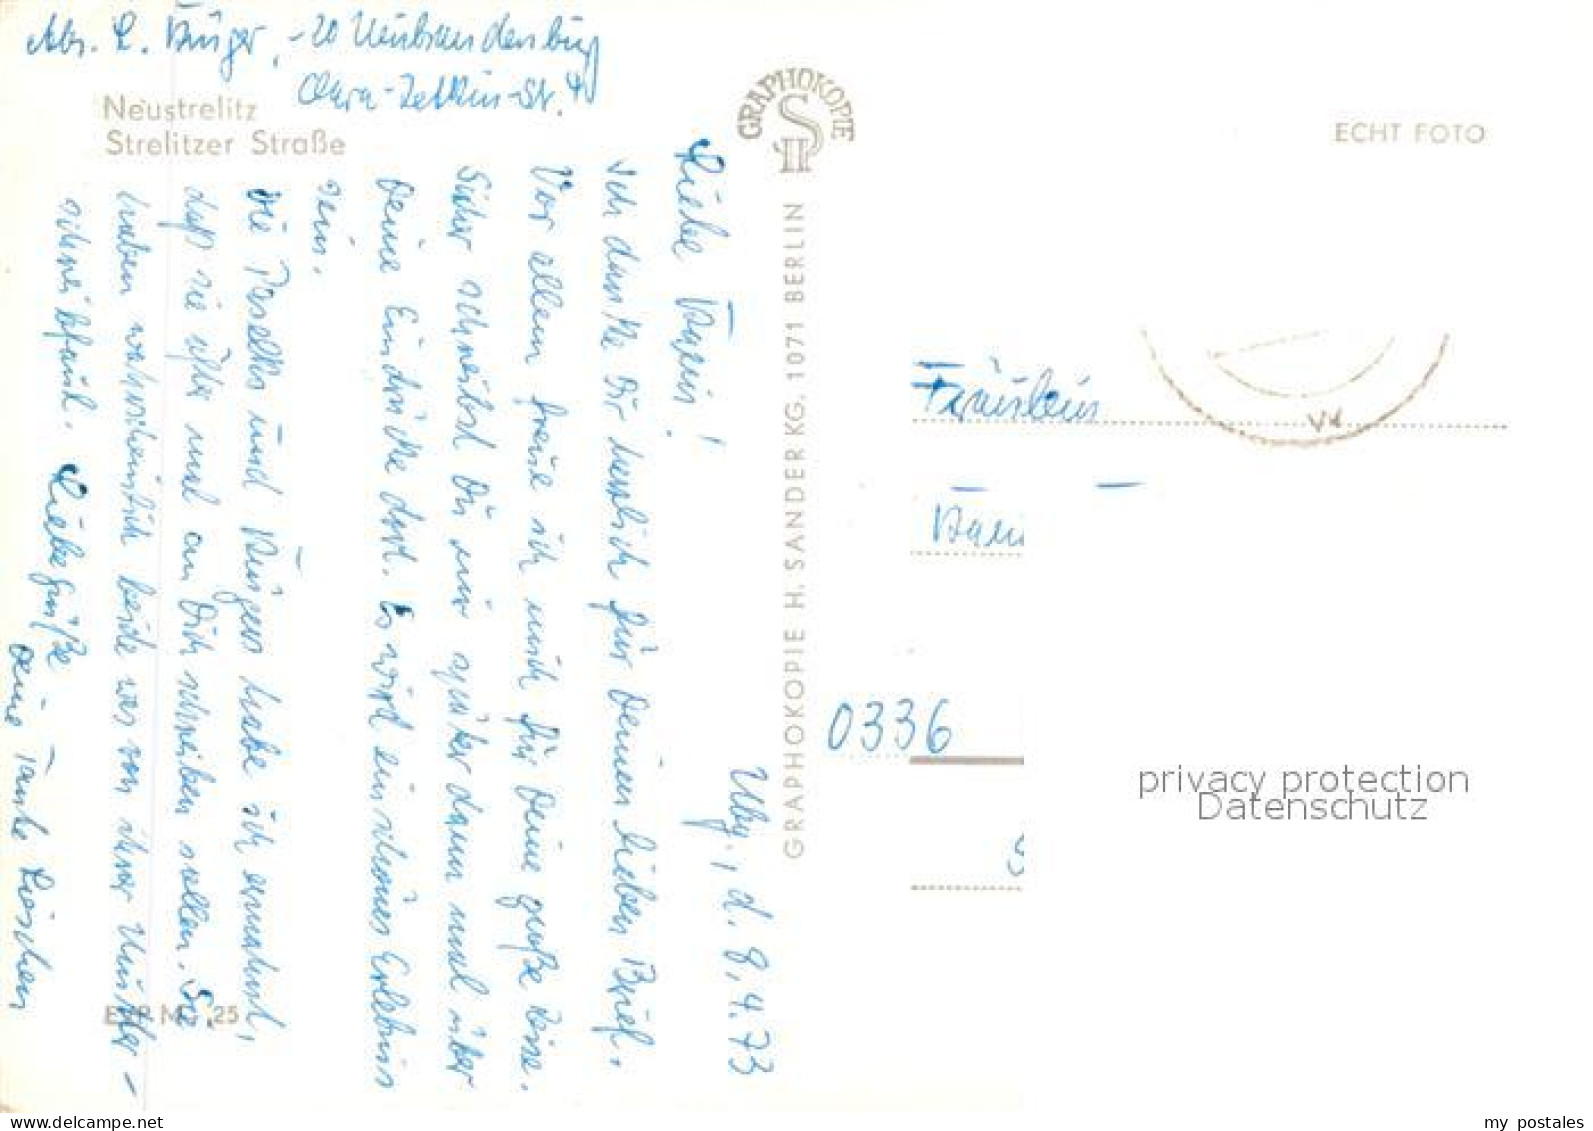 Abs. L. Krüger, -20 Neubrandenburg
Clara-Zetkin-Str.
Neustrelitz
Strelitzer Straße
GRAPHOKOPIE
ECHT FOTO
Nbg., d. 8.4.73
Liebe Karin!
Ich danke Dir herzlich für Deinen lieben Brief.
Vor allem freue ich mich für Deine große Reise.
Sicher schreibst Du mir später dann mal über
Deine Eindrücke dort. Es wird ein schönes Erlebnis
sein.
Die und Krügers habe ich ermahnt,
daß sie öfter mal an Dich schreiben sollen. Sie
haben wahrscheinlich beide was von ihrer Mutter -
schreibfaul. Liebe Grüße
Deine Tante Lieschen
EVP M -,25
GRAPHOKOPIE H. SANDER KG, 1071 BERLIN
Fräulein
0336
privacy protection
Datenschutz
my postales